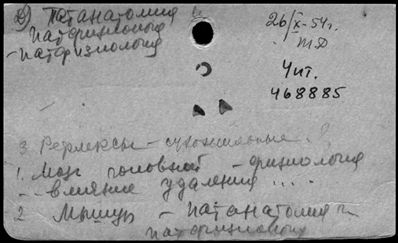 2) Патанатомия и
патфизиология
- патфизиология
26/X-54г.
Чит.
468885
3. Рефлексы - сухожильные.
1. Мозг головной - физиология
- - влияние удаления ...
2 Мышцы - патанатомия и
патфизиология